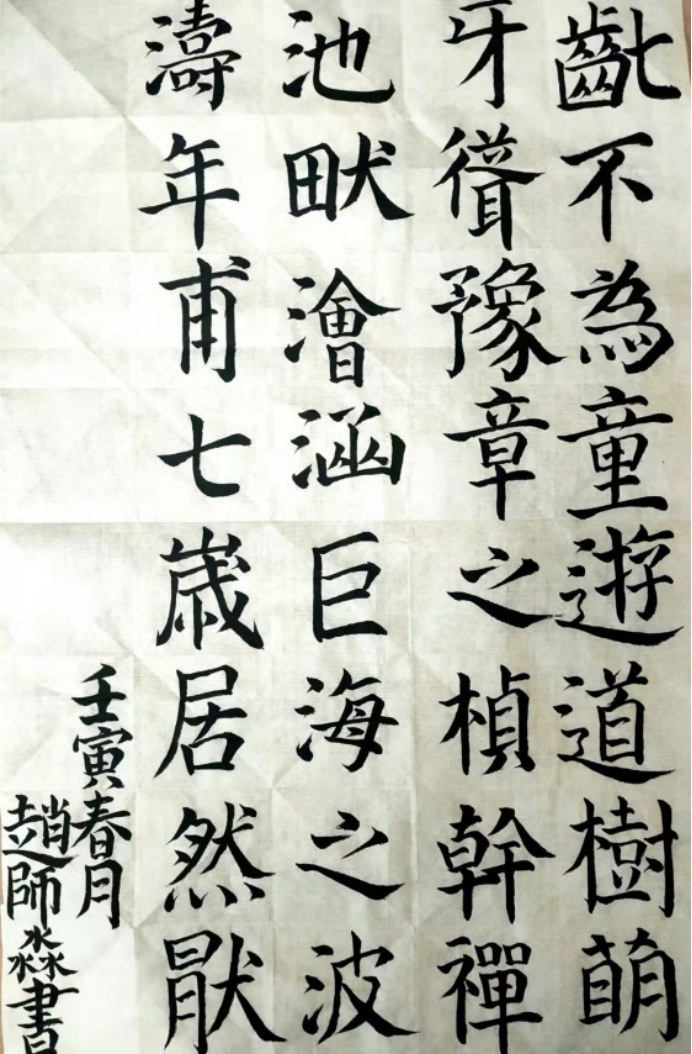 齔不為童遊道樹萌
牙聳豫章之楨幹禪
池畎澮涵巨海之波
濤年甫七歲居然猒
壬寅春月
趙師淼書